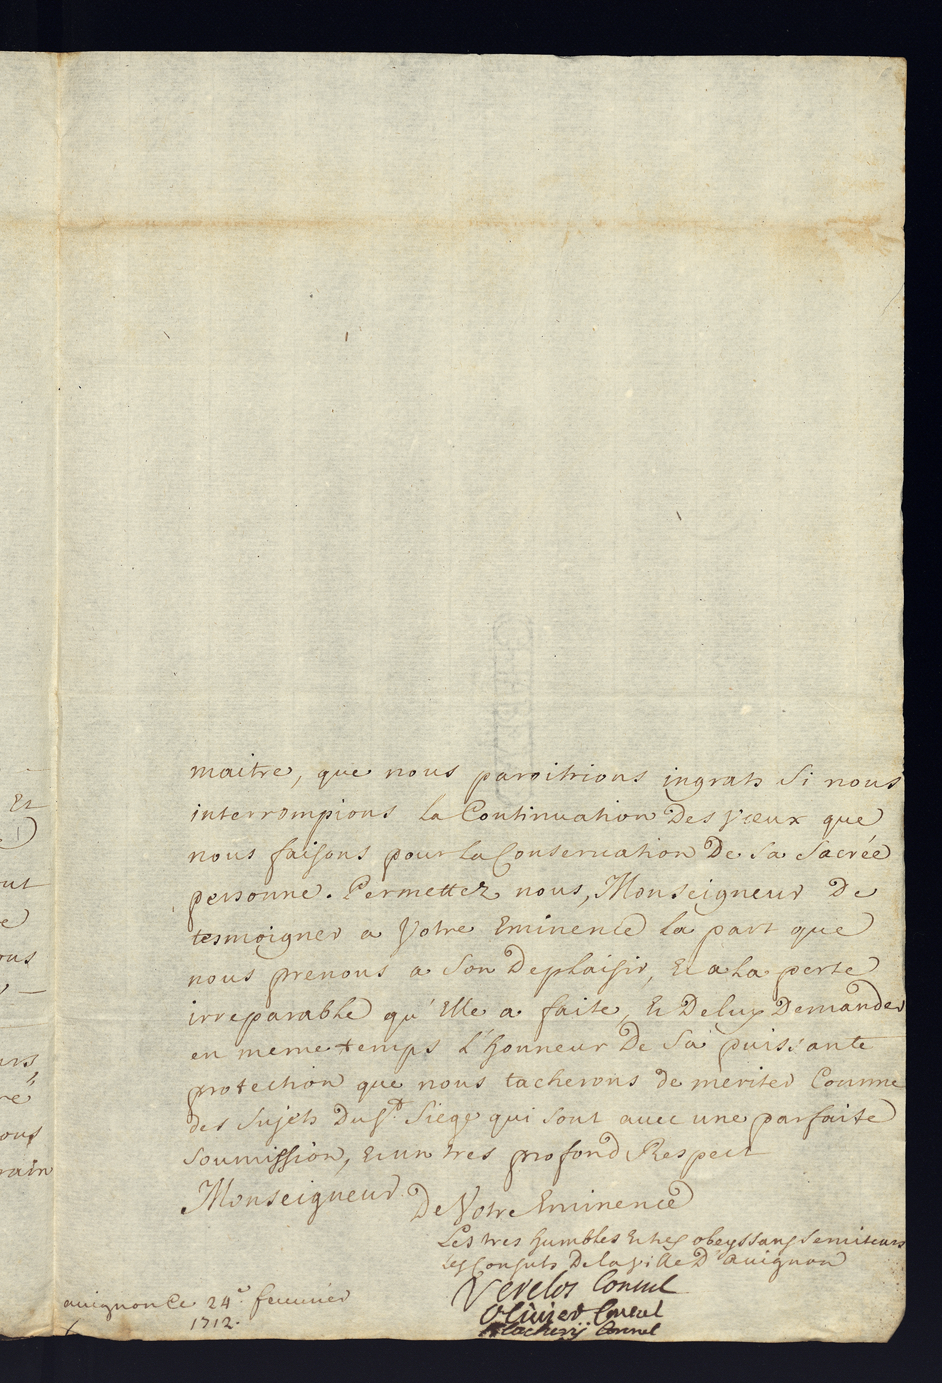 maitre, que nous paroitrions ingrats si nous
interrompions la Continuation Des vœux que
nous faisons pour La Conservation De sa Sacrée
personne. Permettez nous, Monseigneur De
tesmoigner a Votre Eminence la part que
nous prenons a son Deplaisir, Et a La perte
irreparable qu'Elle a faite, Et De luy Demander
en meme temps L'honneur De sa puissante
protection que nous tacherons de meriter Comme
des Sujets Du St Siege qui sont avec une parfaite
soumission, Et un tres profond Respect
Monseigneur
De Votre Eminence
Les tres humbles Et tres obeyssans serviteurs
Les Consuls De la ville D'avignon
Consul
Olivier Consul
Consul
avignon Ce 24e fevrier
1712.
Et
out
e
ous
urs,
re
ous
rain